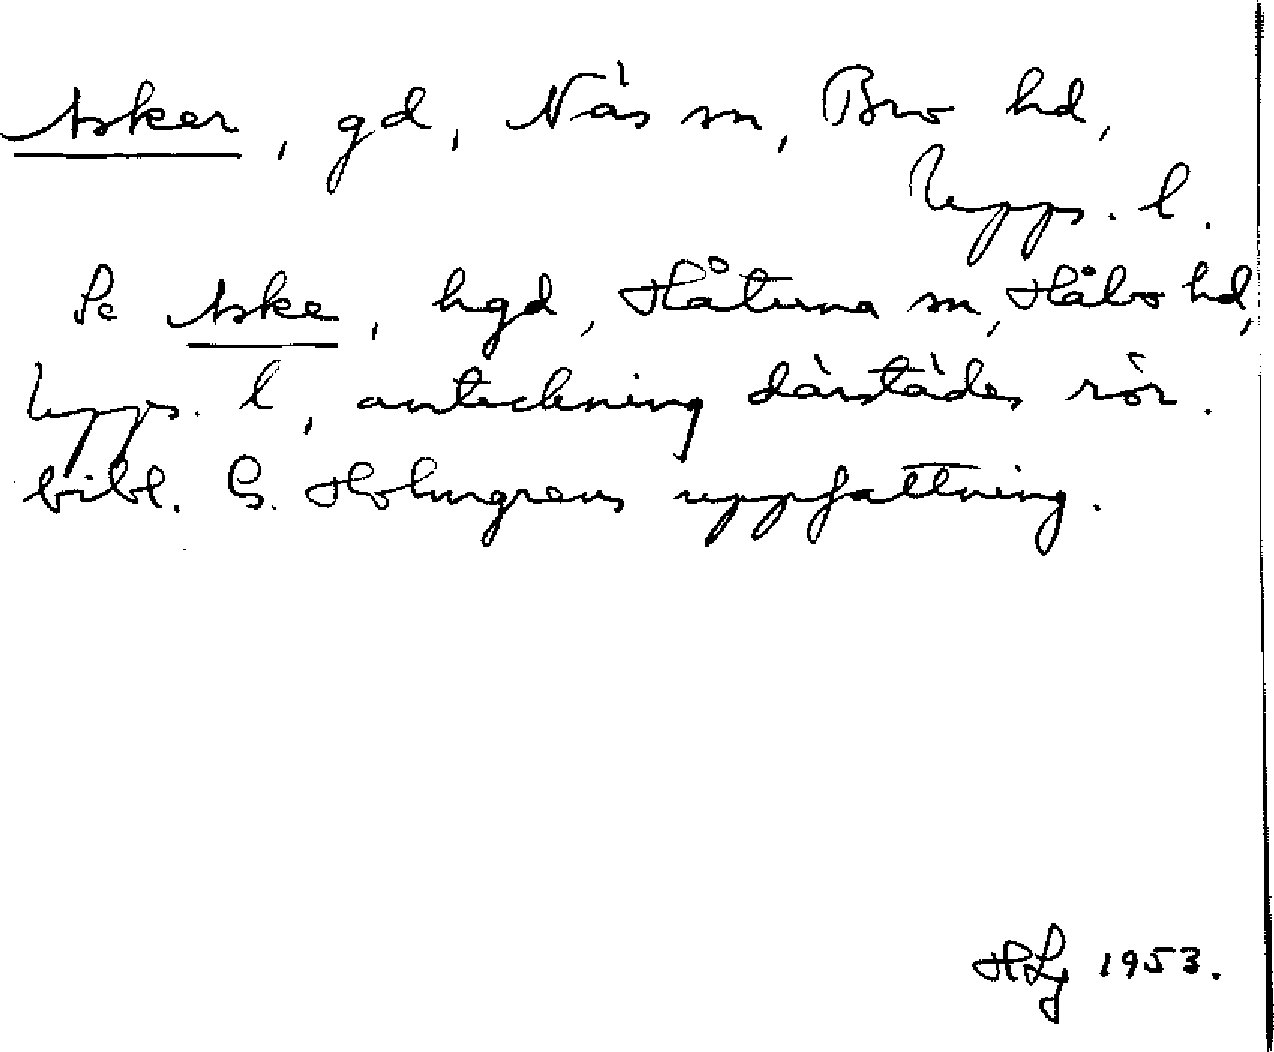 Asker, gd, Näs sn, Bro hd,
Upps. l.
Se Aske, hgd, Håtuna sn, Håbo hd,
Upps. l, anteckning därstädes rör.
bibl. G. Holmgrens uppfattning.
HLj 1953.